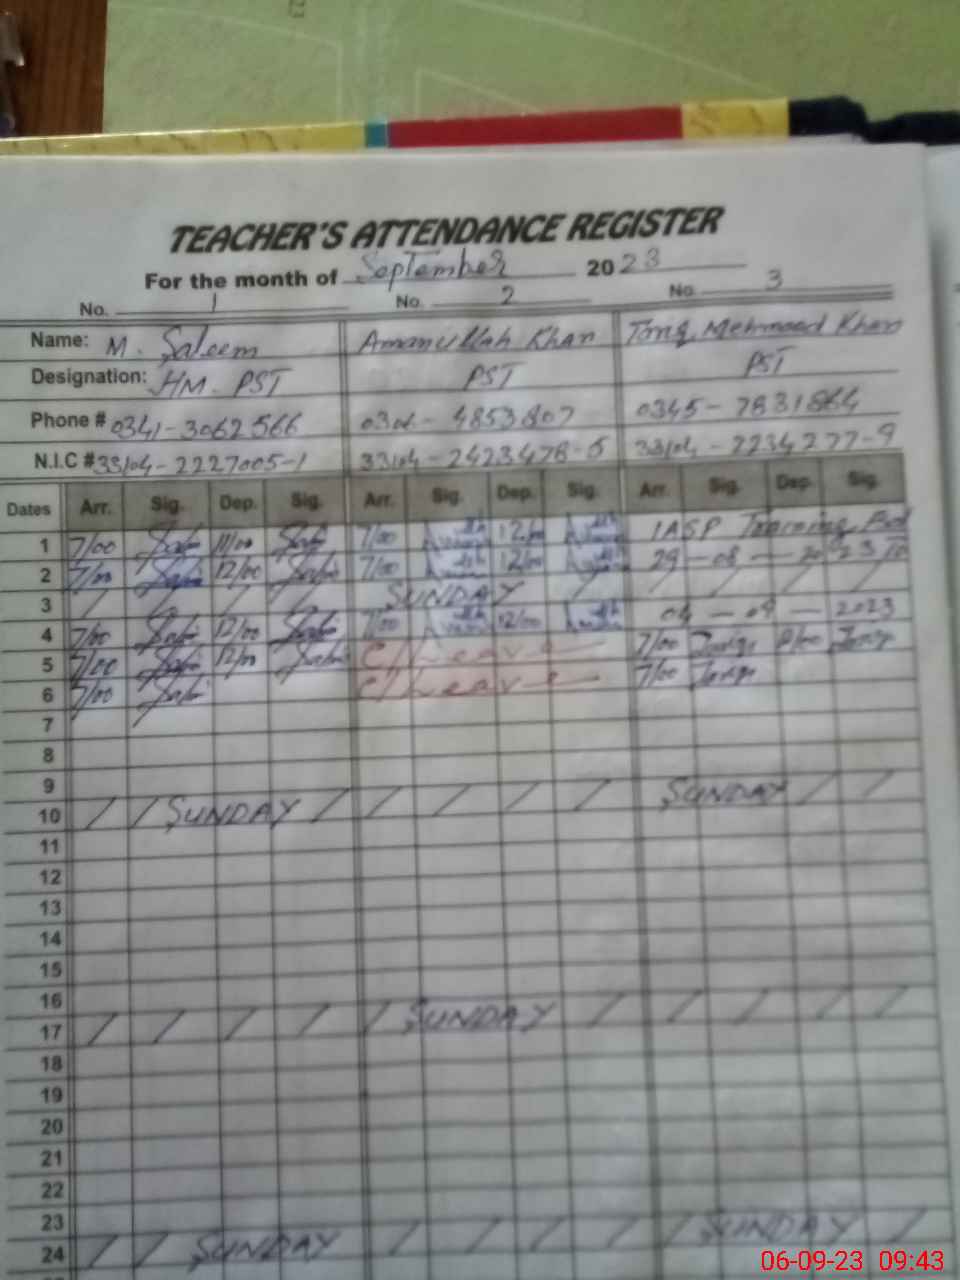 23
TEACHER'S ATTENDANCE REGISTER
For the month of September 2023
No. 1 No. 2 No. 3
Name: M. Saleem Amanullah Khan Tariq Mehmood Khan
Designation: HM. PST PST PST
Phone # 0341-3062566 0306-4853807 0345-7831864
N.I.C # 33104-2227005-1 33104-2423478-5 33104-2234277-9
Dates Arr. Sig. Dep. Sig. Arr. Sig. Dep. Sig. Arr. Sig. Dep. Sig.
1 7/00 11/00 7/00 12/00 IASP Training
2 7/00 12/00 7/00 12/00 29-08-2023 to
3 / / / / SUNDAY / / / / / /
4 7/00 12/00 7/00 12/00 04-09-2023
5 7/00 12/00 C/Leave 7/00 Tariq Tariq
6 7/00 C/Leave 7/00 Tariq
7
8
9
10 / / SUNDAY / / / / / SUNDAY / /
11
12
13
14
15
16
17 / / / / / SUNDAY / / / / /
18
19
20
21
22
23
24 / / SUNDAY / / / / SUNDAY /
06-09-23 09:43